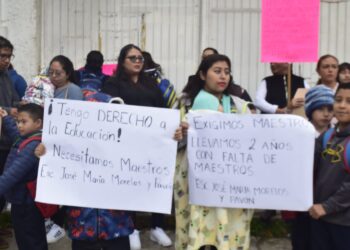 ¡Tengo DERECHO a
la Educación!
Necesitamos Maestros
Esc. José María Morelos y Pavón
EXIGIMOS MAESTRO
LLEVAMOS 2 AÑOS
CON FALTA DE
MAESTROS
ESC JOSÉ MARÍA MORELOS
Y PAVÓN